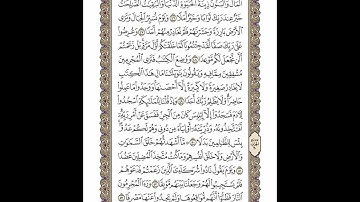 ٱلۡمَالُ وَٱلۡبَنُونَ زِينَةُ ٱلۡحَيَوٰةِ ٱلدُّنۡيَاۖ وَٱلۡبَٰقِيَٰتُ ٱلصَّٰلِحَٰتُ
خَيۡرٌ عِندَ رَبِّكَ ثَوَابٗا وَخَيۡرٌ أَمَلٗا ٤٦ وَيَوۡمَ نُسَيِّرُ ٱلۡجِبَالَ وَتَرَى
ٱلۡأَرۡضَ بَارِزَةٗ وَحَشَرۡنَٰهُمۡ فَلَمۡ نُغَادِرۡ مِنۡهُمۡ أَحَدٗا ٤٧ وَعُرِضُواْ
عَلَىٰ رَبِّكَ صَفّٗا لَّقَدۡ جِئۡتُمُونَا كَمَا خَلَقۡنَٰكُمۡ أَوَّلَ مَرَّةِۭۚ بَلۡ زَعَمۡتُمۡ
أَلَّن نَّجۡعَلَ لَكُم مَّوۡعِدٗا ٤٨ وَوُضِعَ ٱلۡكِتَٰبُ فَتَرَى ٱلۡمُجۡرِمِينَ
مُشۡفِقِينَ مِمَّا فِيهِ وَيَقُولُونَ يَٰوَيۡلَتَنَا مَالِ هَٰذَا ٱلۡكِتَٰبِ
لَا يُغَادِرُ صَغِيرَةٗ وَلَا كَبِيرَةً إِلَّآ أَحۡصَىٰهَاۚ وَوَجَدُواْ مَا عَمِلُواْ
حَاضِرٗاۗ وَلَا يَظۡلِمُ رَبُّكَ أَحَدٗا ٤٩ وَإِذۡ قُلۡنَا لِلۡمَلَٰٓئِكَةِ ٱسۡجُدُواْ
لِأٓدَمَ فَسَجَدُوٓاْ إِلَّآ إِبۡلِيسَ كَانَ مِنَ ٱلۡجِنِّ فَفَسَقَ عَنۡ أَمۡرِ رَبِّهِۦٓۗ
أَفَتَتَّخِذُونَهُۥ وَذُرِّيَّتَهُۥٓ أَوۡلِيَآءَ مِن دُونِي وَهُمۡ لَكُمۡ عَدُوُّۢۚ
بِئۡسَ لِلظَّٰلِمِينَ بَدَلٗا ٥٠ مَّآ أَشۡهَدتُّهُمۡ خَلۡقَ ٱلسَّمَٰوَٰتِ
وَٱلۡأَرۡضِ وَلَا خَلۡقَ أَنفُسِهِمۡ وَمَا كُنتُ مُتَّخِذَ ٱلۡمُضِلِّينَ عَضُدٗا
٥١ وَيَوۡمَ يَقُولُ نَادُواْ شُرَكَآءِيَ ٱلَّذِينَ زَعَمۡتُمۡ فَدَعَوۡهُمۡ
فَلَمۡ يَسۡتَجِيبُواْ لَهُمۡ وَجَعَلۡنَا بَيۡنَهُم مَّوۡبِقٗا ٥٢ وَرَءَا ٱلۡمُجۡرِمُونَ
ٱلنَّارَ فَظَنُّوٓاْ أَنَّهُم مُّوَاقِعُوهَا وَلَمۡ يَجِدُواْ عَنۡهَا مَصۡرِفٗا ٥٣